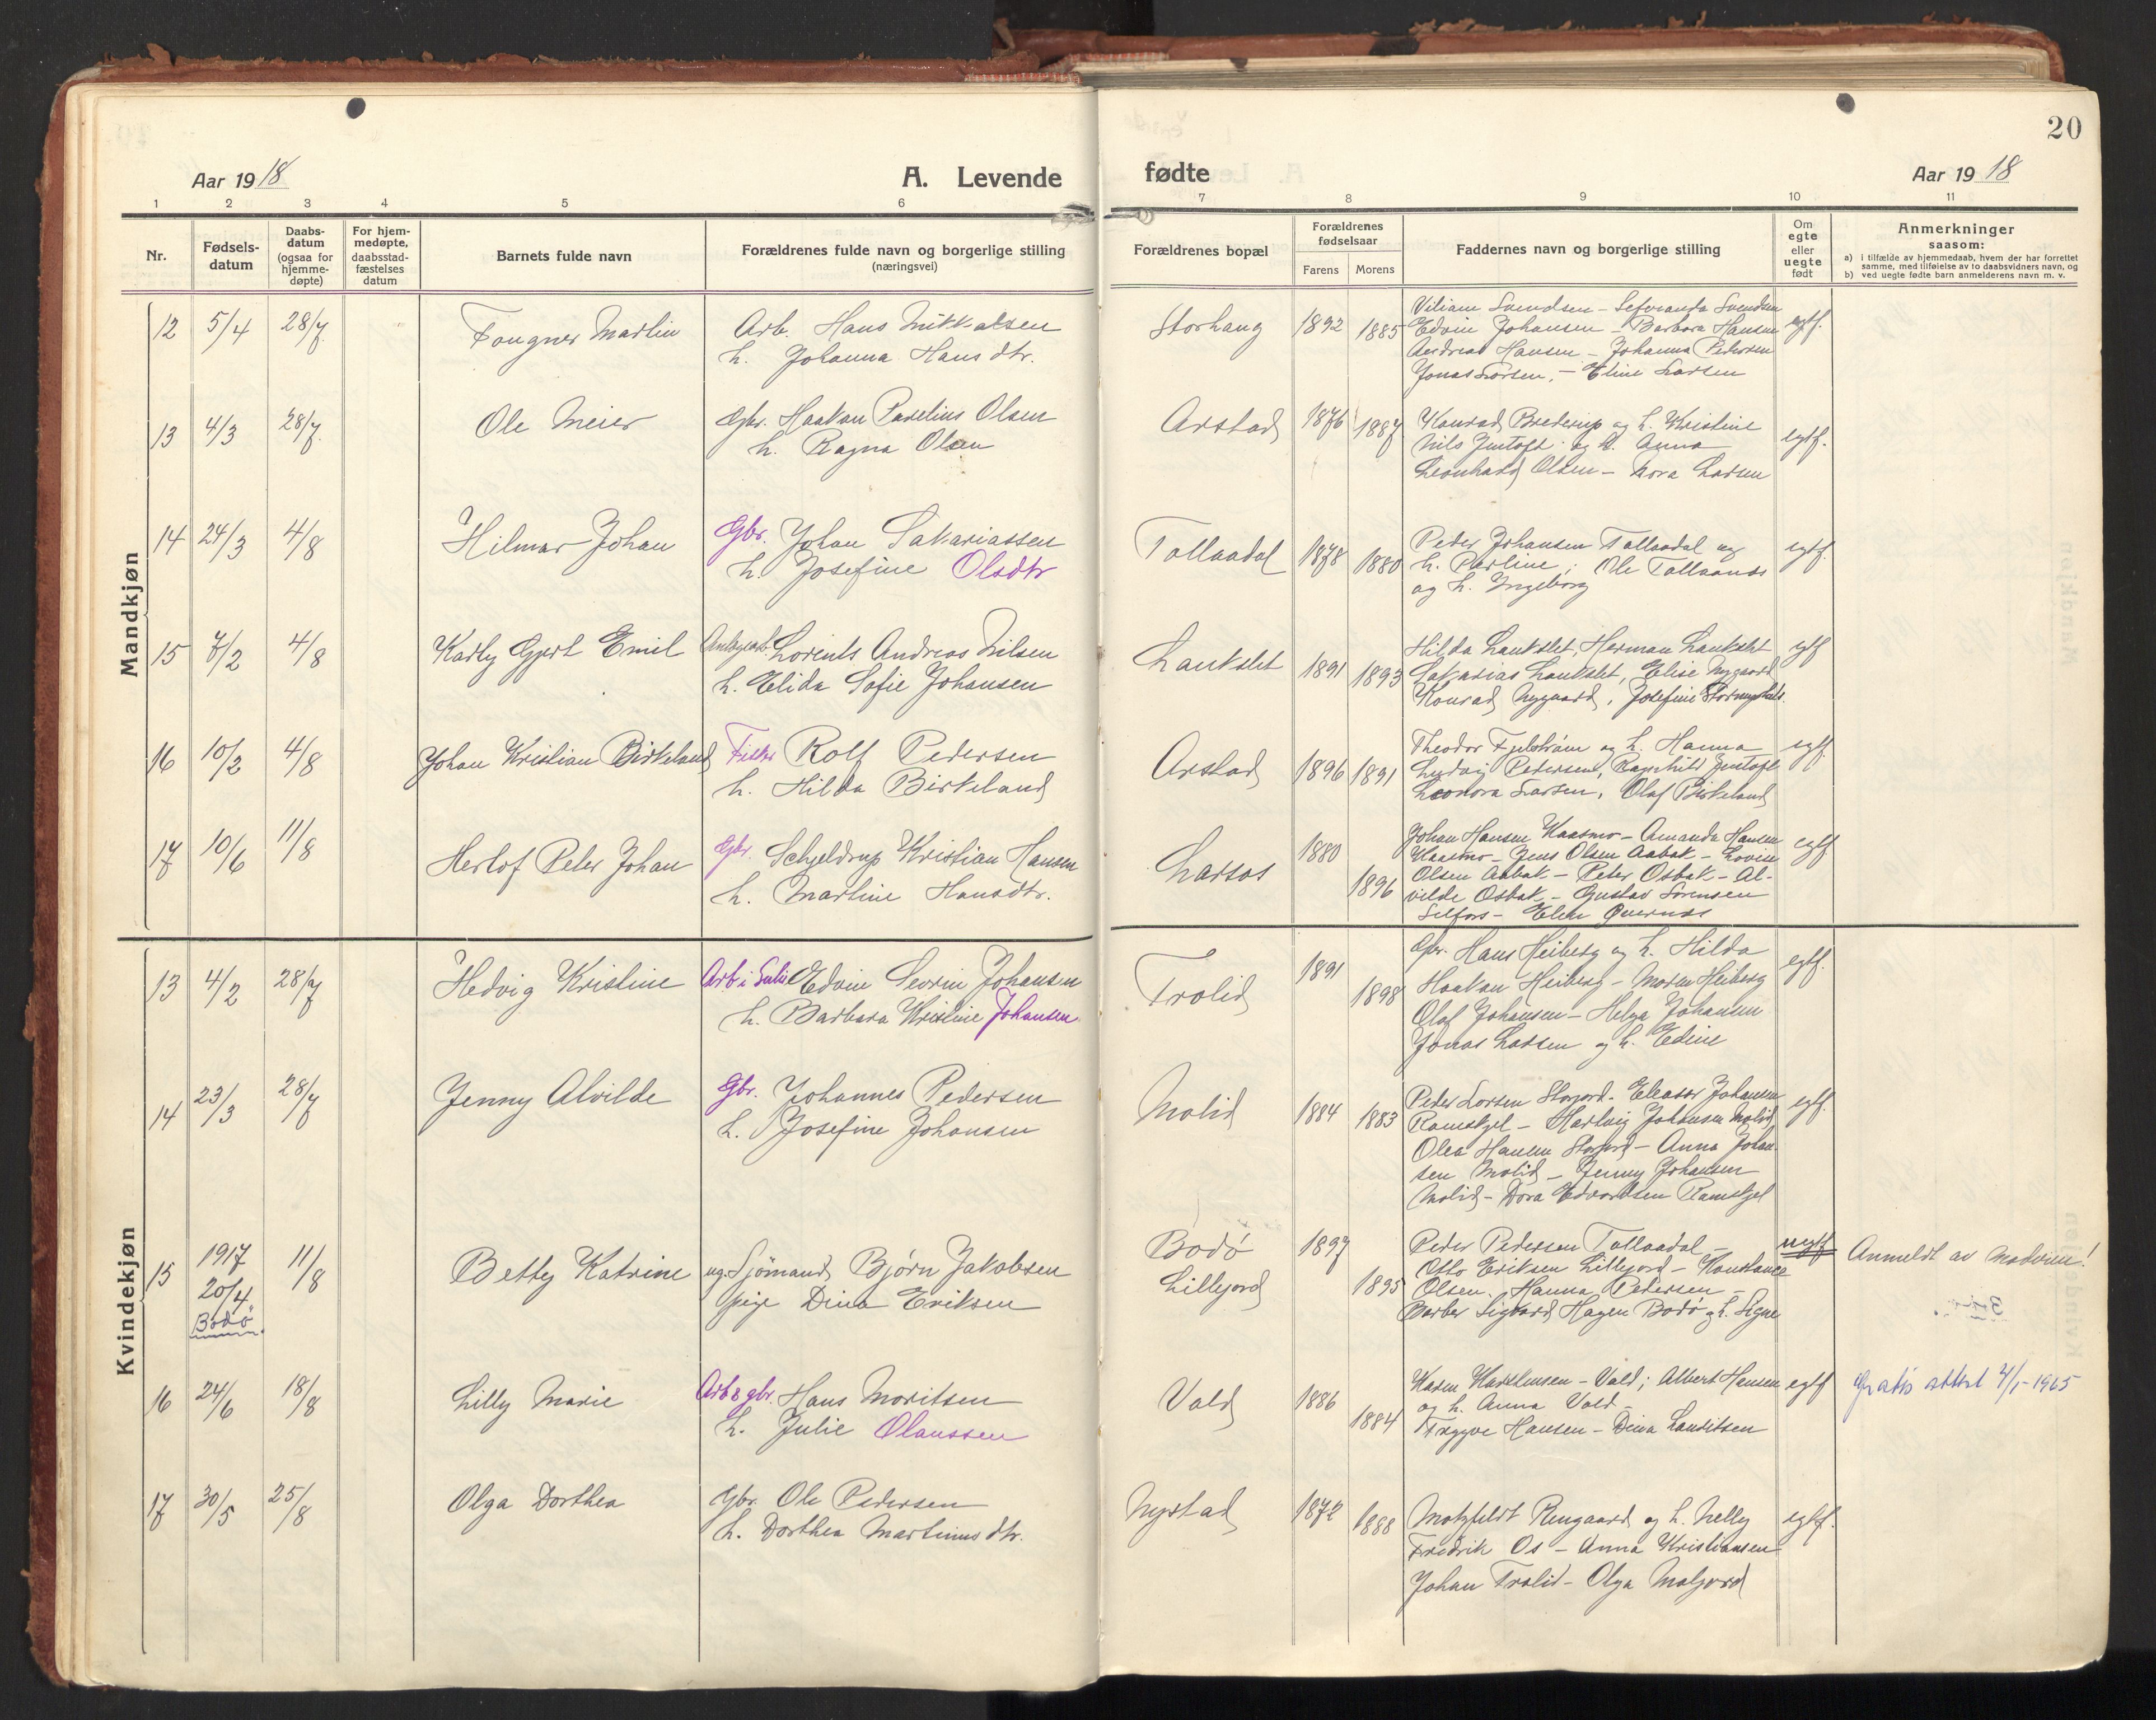 20
Aar 1918 A. Levende fødte Aar 1918
1 2 3 4 5 6 7 8 9 10 11
Nr.
Fødsels-
datum
Daabs-
datum
(ogsaa for
hjemme-
døpte)
For hjem-
medøpte,
daabsstad-
fæstelses
datum
Barnets fulde navn
Forældrenes fulde navn og borgerlige stilling
(næringsvei)
Forældrenes bopæl
Forældrenes
fødselsaar
Farens Morens
Faddernes navn og borgerlige stilling
Om
egte
eller
uegte
født
Anmerkninger
saasom:
a) i tilfælde av hjemmedaab, hvem der har forrettet
samme, med tilføielse av to daabsvidners navn, og
b) ved uegte fødte barn anmelderens navn m. v.
Mandkjøn
12 5/4 28/7 Fougner Martin
Arb. Hans Mikkalsen
h. Johanna Hansdtr.
Storhaug 1892 1885
Viliam Svendsen - Svendsen
Edvin Johansen - Barbara Hansen
Andreas Hansen - Johanna Pedersen
Jonas Larsen, - Eline Larsen
egtf.
13 4/3 28/7 Ole Meier
Gbr. Haakon Paselius Olsen
h. Ragna Olsen
Arstad 1876 1887
Konrad Brederup og h. Kristine
Nils Justoft og h. Anna
Leonhard Olsen - Nora Larsen
egtf.
14 24/3 4/8 Hilmar Johan
Gbr. Johan Sakariassen
h. Josefine Olsdtr
Tollaadal 1878 1880
Peder Johansen Tollaadal og
h. Perline; Ole Tollaanes
og h. Ingeborg
egtf.
15 7/2 4/8 Karly Gjert Emil
Lorents Andreas Nilsen
h. Elida Sofie Johansen
Laukslet 1891 1893
Hilda Laukslet, Herman Laukslet
Sakarias Laukslet, Elise Nygaard
Konrad Nygaard, Josefine
egtf
16 10/2 4/8 Johan Kristian Birkeland
Fisker Rolf Pedersen
h. Hilda Birkeland
Arstad 1896 1891
Theodor Fjelstrøm og h. Hanna
Ludvig Pedersen, Ragnhild Justoft
Leonora Larsen, Olaf Birkeland
egtf.
17 10/6 11/8 Herlof Peter Johan
Gbr. Schjeldrup Kristian Hansen
h. Martine Hansdtr.
Larsos 1880 1896
Johan Hansen Kaasmo - Amanda Hansen
Kaasmo - Jens Olsen Aabak - Lovise
Olsen Aabak - Peter Osbak - Al-
vilde Osbak - Gustav Sørensen
Selfors - Elen Qvernes
egtf
Kvindekjøn
13 4/2 28/7 Hedvig Kristine
Arb i Sulis Edvin Severin Johansen
h. Barbara Kristine Johansen
Trolid 1891 1898
Gbr. Hans Heiberg og h. Hilda
Haakon Heiberg - Maren Heiberg
Olaf Johansen - Helga Johansen
Jonas Larsen og h. Edine
egtf.
14 23/3 28/7 Jenny Alvilde
Gbr. Johannes Pedersen
h. Josefine Johansen
Molid 1884 1883
Peder Larsen Storjord - Eleasar Johansen
Ramskjel - Hartvig Johansen Molid
Olea Hansen Storjord - Anna Johan-
sen Molid - Jenny Johansen
Molid - Dora Edvardsen Ramskjel
egtf.
15 1917
20/4
Bodø 11/8 Betty Katrine
ug. Sjømand Bjørn Jakobsen
pige Dina Eriksen
Bodø
Lillejord 1897 1895
Peder Pedersen Tollaadal -
Otto Eriksen Lillejord - Konstance
Olsen, Hanna Pedersen -
Barber Sigvard Hagen Bodø og h. Signe
uegtf
Anmeldt av Moderen!
16 24/6 18/8 Lilly Marie
Arb & gbr. Hans Moritsen
h. Julie Olaussen
Vold 1886 1884
Karen Karlsen - Vold; Albert Hansen
og h. Anna Vold -
Trygve Hansen - Dina Lauritsen
egtf
Gratis attest 4/1-1965
17 30/5 25/8 Olga Dorthea
Gbr. Ole Pedersen
h. Dorthea Martinusdtr.
Nystad 1872 1888
Motzfeldt Rengaard og h. Nelly
Fredrik Os - Anna Kristiansen
Johan Trolid - Olga Moljord
egtf.